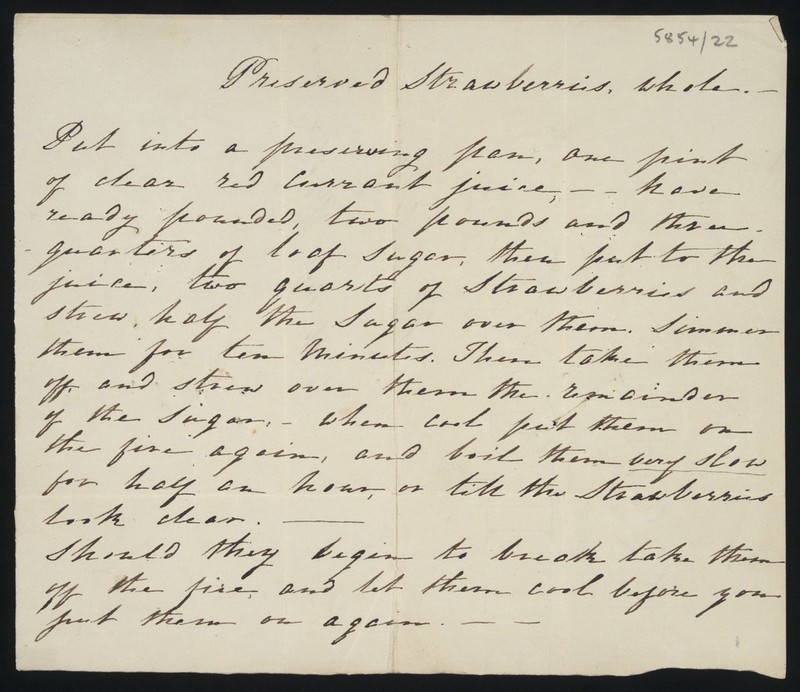 5854/22
Preserved Strawberries, whole. –
Put into a preserving pan, one pint
of clear red Currant juice, – – have
ready pounded, two pounds and three-
quarters of loaf Sugar, then put to the
juice, two quarts of Strawberries and
strew, half the Sugar over them. Simmer
them for ten Minutes. Then take them
off, and strew over them the remainder
of the Sugar, – when cool put them on
the fire again, and boil them very slow
for half an hour, or till the Strawberries
look clear. ——
Should they begin to break take them
off the fire, and let them cool before you
put them on again. – –